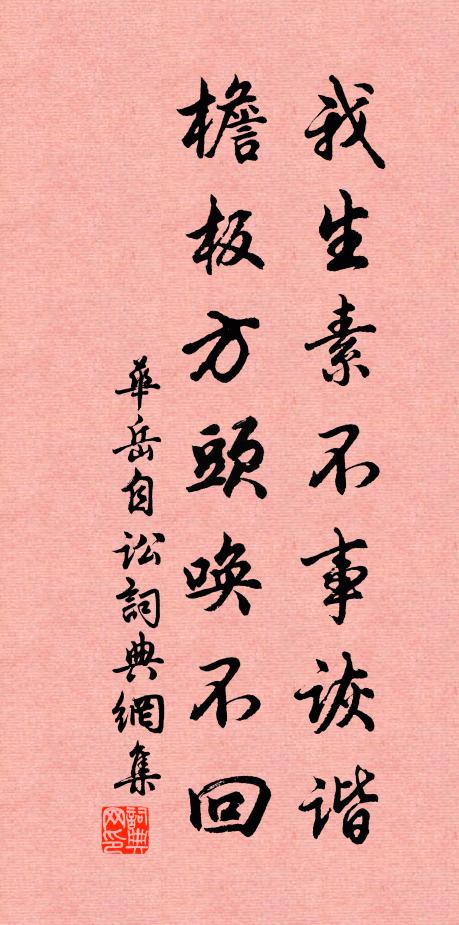 我生素不事詼諧
檐板方頭喚不回
華岳自訟詞典網集
詞典网印